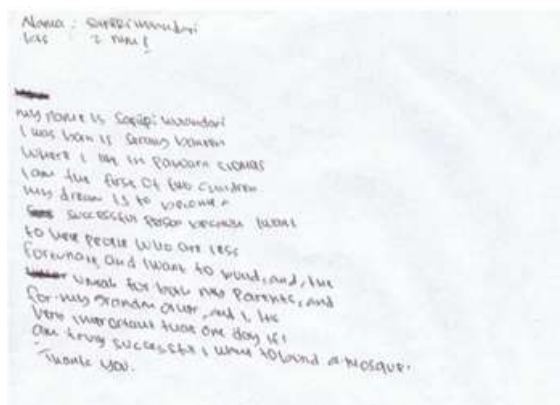 Nama :
my name is
I was born is Serang banten
Where I live in Pancaran ciomas
I am the first of two children
my dream is to become a
successful person because I want
to help people who are less
fortunate and I want to build, and, the
umrah for both my Parents, and
for my grandma
very important that one day if I
am truly successful I want to build a mosque.
Thank you.